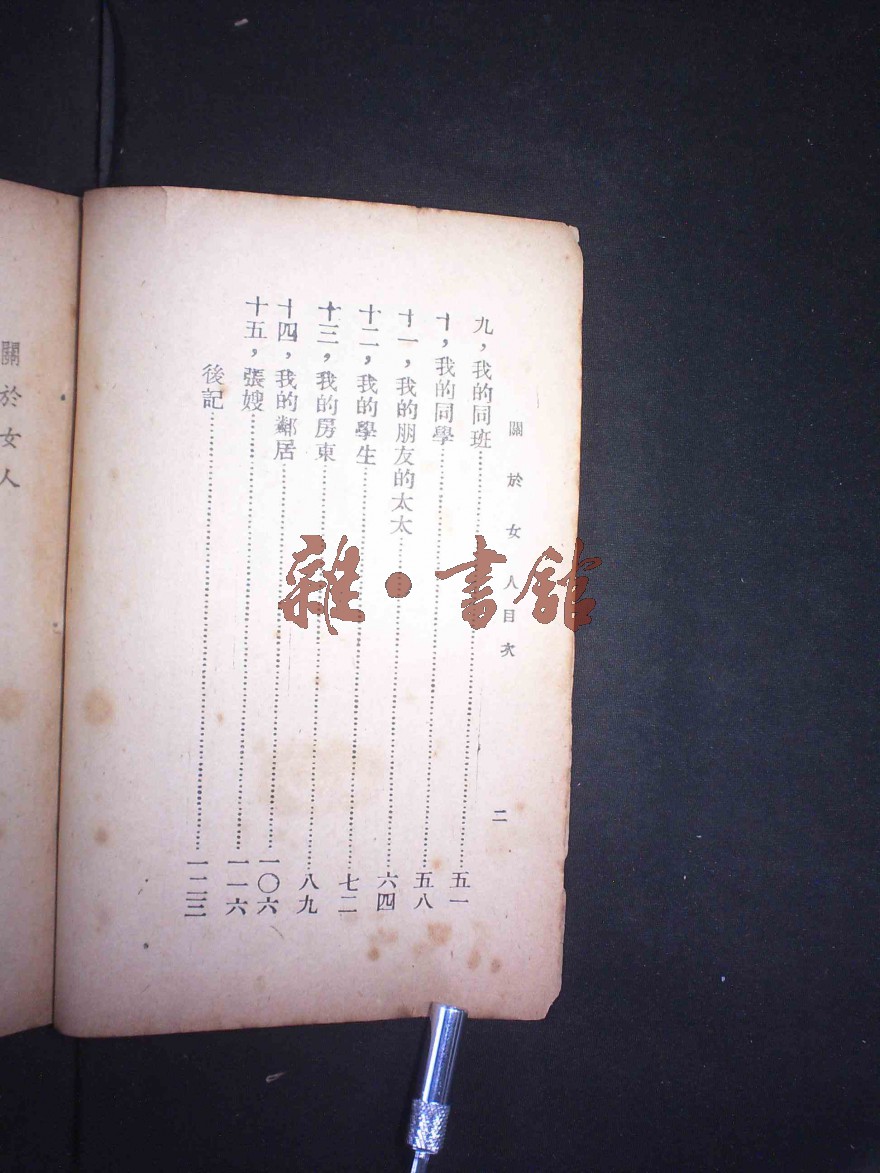 關於女人目次
二
九，我的同班……五一
十，我的同學……五八
十一，我的朋友的太太……六四
十二，我的學生……七二
十三，我的房東……八九
十四，我的鄰居……一〇六
十五，張嫂……一一六
後記……一二三
關於女人
雜·書館